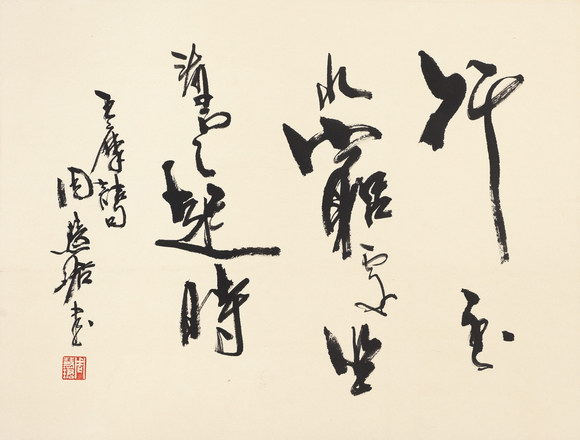 行至
水窮處坐
看雲起時
王摩詰句
周慧珺書